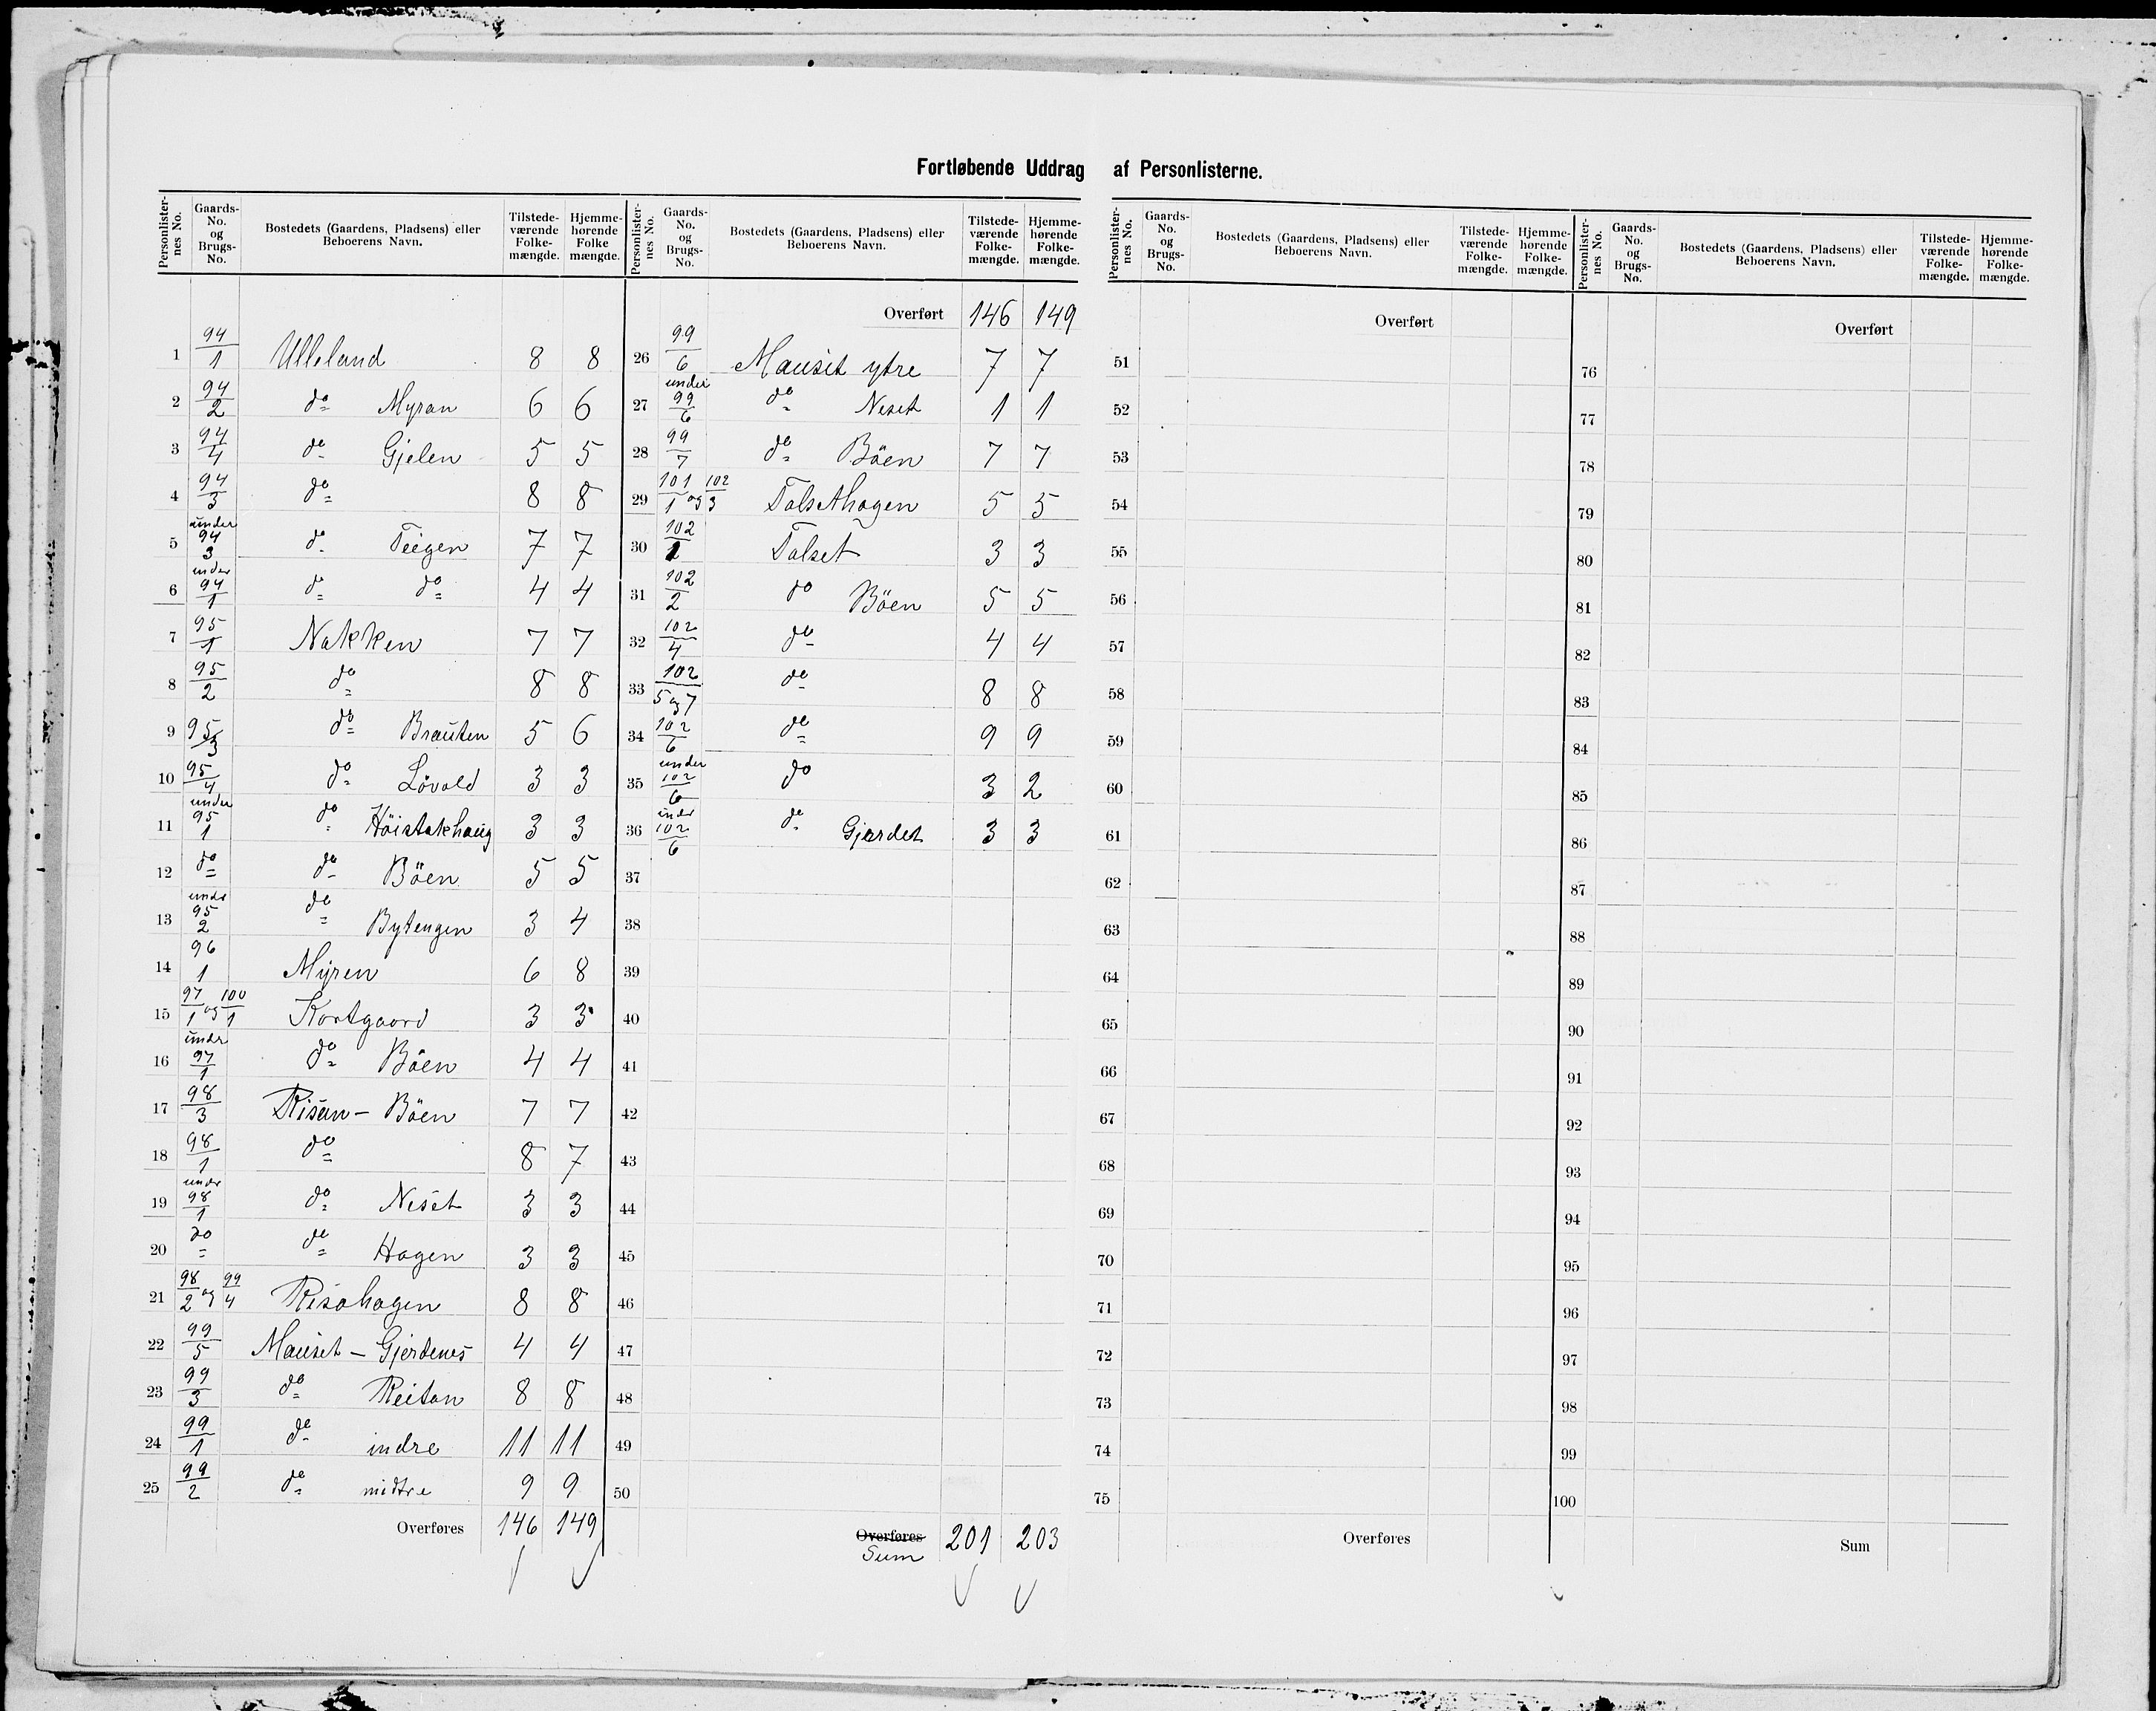 Fortløbende Uddrag af Personlisterne.
Personlister-nes No. | Gaards-No. og Brugs-No. | Bostedets (Gaardens, Pladsens) eller Beboerens Navn. | Tilstede-værende Folke-mængde. | Hjemme-hørende Folke mængde.
1 94/1 Ulleland 8 8
2 94/2 do Myran 6 6
3 94/4 do Gjelen 5 5
4 94/3 do 8 8
5 under 94/3 do Teigen 7 7
6 under 94/1 do do 4 4
7 95/1 Nakken 7 7
8 95/2 do 8 8
9 95/3 do Brauten 5 6
10 95/4 do Lövold 3 3
11 under 95/1 do Höistakhaug 3 3
12 do do Böen 5 5
13 under 95/2 do Bytengen 3 4
14 96/1 Myren 6 8
15 97/1 og 100/1 Kortgaard 3 3
16 under 97/1 do Böen 4 4
17 98/3 Risan - Böen 7 7
18 98/1 do 8 7
19 under 98/1 do Neset 3 3
20 do do Hagen 3 3
21 98/2 og 99/4 Risahagen 8 8
22 99/5 Mauset - Gjerdenes 4 4
23 99/3 do Reitan 8 8
24 99/1 do indre 11 11
25 99/2 do midtre 9 9
Overføres 146 149
Personlister-nes No. | Gaards-No. og Brugs-No. | Bostedets (Gaardens, Pladsens) eller Beboerens Navn. | Tilstede-værende Folke-mængde. | Hjemme-hørende Folke-mængde.
Overført 146 149
26 99/6 Mauset ytre 7 7
27 under 99/6 do Neset 1 1
28 99/7 do Böen 7 7
29 101/1 og 102/3 Talsethagen 5 5
30 102/1 Talset 3 3
31 102/2 do Böen 5 5
32 102/4 do 4 4
33 102/5 og 7 do 8 8
34 102/6 do 9 9
35 under 102/6 do 3 2
36 under 102/6 do Gjerdet 3 3
37
38
39
40
41
42
43
44
45
46
47
48
49
50
Overføres
Sum 201 203
Personlister-nes No. | Gaards-No. og Brugs-No. | Bostedets (Gaardens, Pladsens) eller Beboerens Navn. | Tilstede-værende Folke-mængde. | Hjemme-hørende Folke-mængde.
Overført
51
52
53
54
55
56
57
58
59
60
61
62
63
64
65
66
67
68
69
70
71
72
73
74
75
Overføres
Personlister-nes No. | Gaards-No. og Brugs-No. | Bostedets (Gaardens, Pladsens) eller Beboerens Navn. | Tilstede-værende Folke-mængde. | Hjemme-hørende Folke-mængde.
Overført
76
77
78
79
80
81
82
83
84
85
86
87
88
89
90
91
92
93
94
95
96
97
98
99
100
Sum